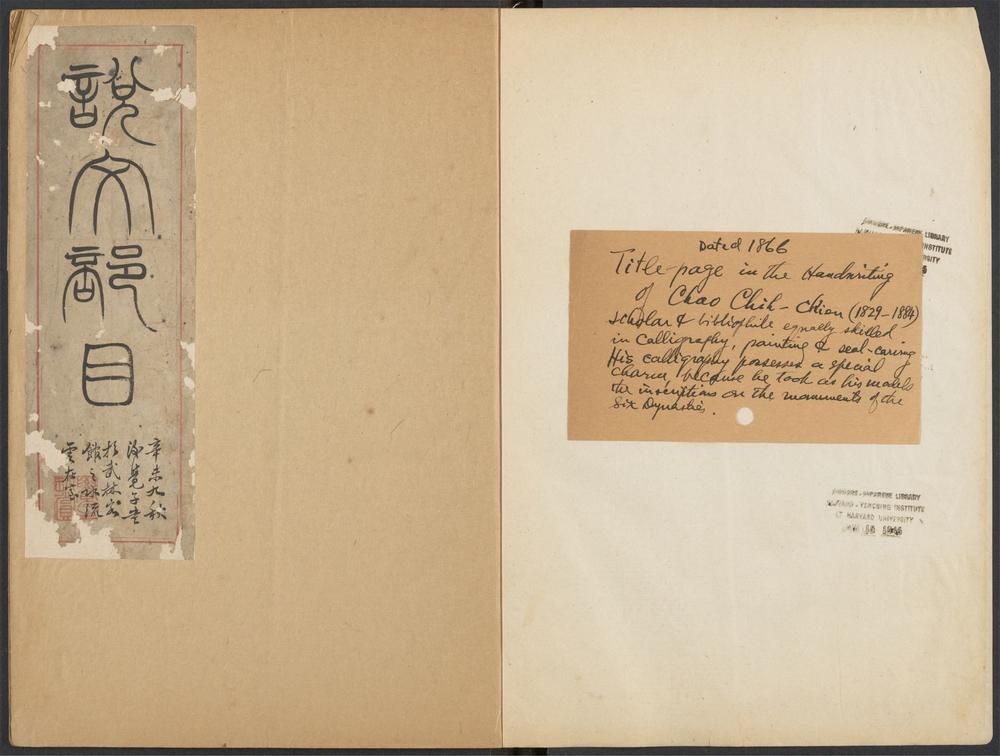 說文部目
辛未九秋
海覺子書
於武林客
館之味流
雲在室
Dated 1866
Title-page in the Handwriting
of Chao Chih-Chien (1829-1884)
scholar & bibliophile equally skilled
in calligraphy, painting & seal-carving
His calligraphy possesses a special
charm because he took as his models
the inscriptions on the monuments of the
Six Dynasties.
LIBRARY
INSTITUTE
CHINESE-JAPANESE LIBRARY
HARVARD-YENCHING INSTITUTE
AT HARVARD UNIVERSITY